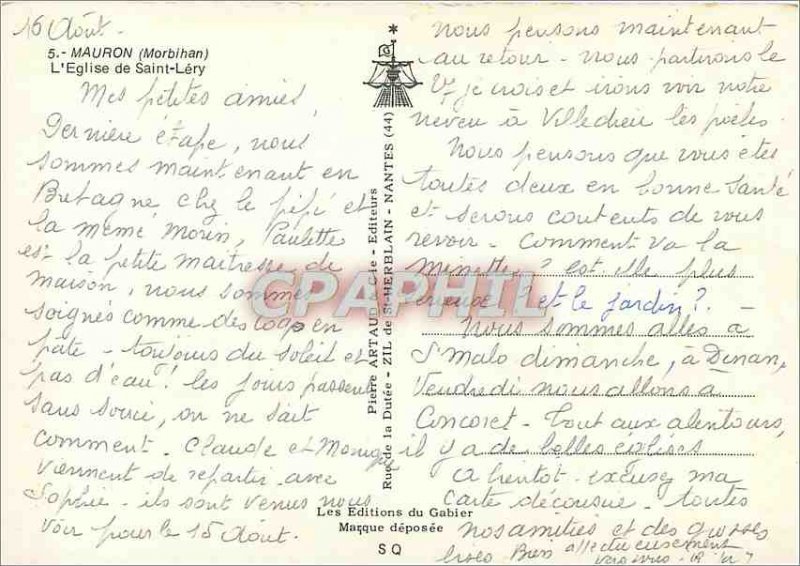 16 Août.
5.- MAURON (Morbihan)
L'Eglise de Saint-Léry
Mes petites amies,
Dernière étape, nous
sommes maintenant en
Bretagne chez le pépé et
la mémé Morin, Paulette
est la petite maitresse de
maison, nous sommes
soignés comme des coqs en
pâte - toujours du soleil et
pas d'eau! les jours passent
sans souci, on ne sait
comment. Claude et Monique
viennent de repartir avec
Sophie - ils sont venus nous
voir pour le 15 Août.
Pierre ARTAUD & Cie - Editeurs
Rue de la Dutée - ZIL de St-HERBLAIN - NANTES (44)
CPAPHIL
Les Editions du Gabier
Marque déposée
SQ
Nous pensons maintenant
au retour - nous partirons le
je crois et irons voir notre
neveu à Villedieu les poëles.
Nous pensons que vous êtes
toutes deux en bonne santé
et serons contents de vous
revoir - Comment va la
Minette? est-elle plus
? et le jardin? -
Nous sommes allés à
St Malo dimanche, à Dinan,
Vendredi nous allons à
Concoret - Tout aux alentours,
il y a de belles églises
A bientôt - excusez ma
carte décousue - toutes
nos amitiés et des grosses
bises Bien affectueusement